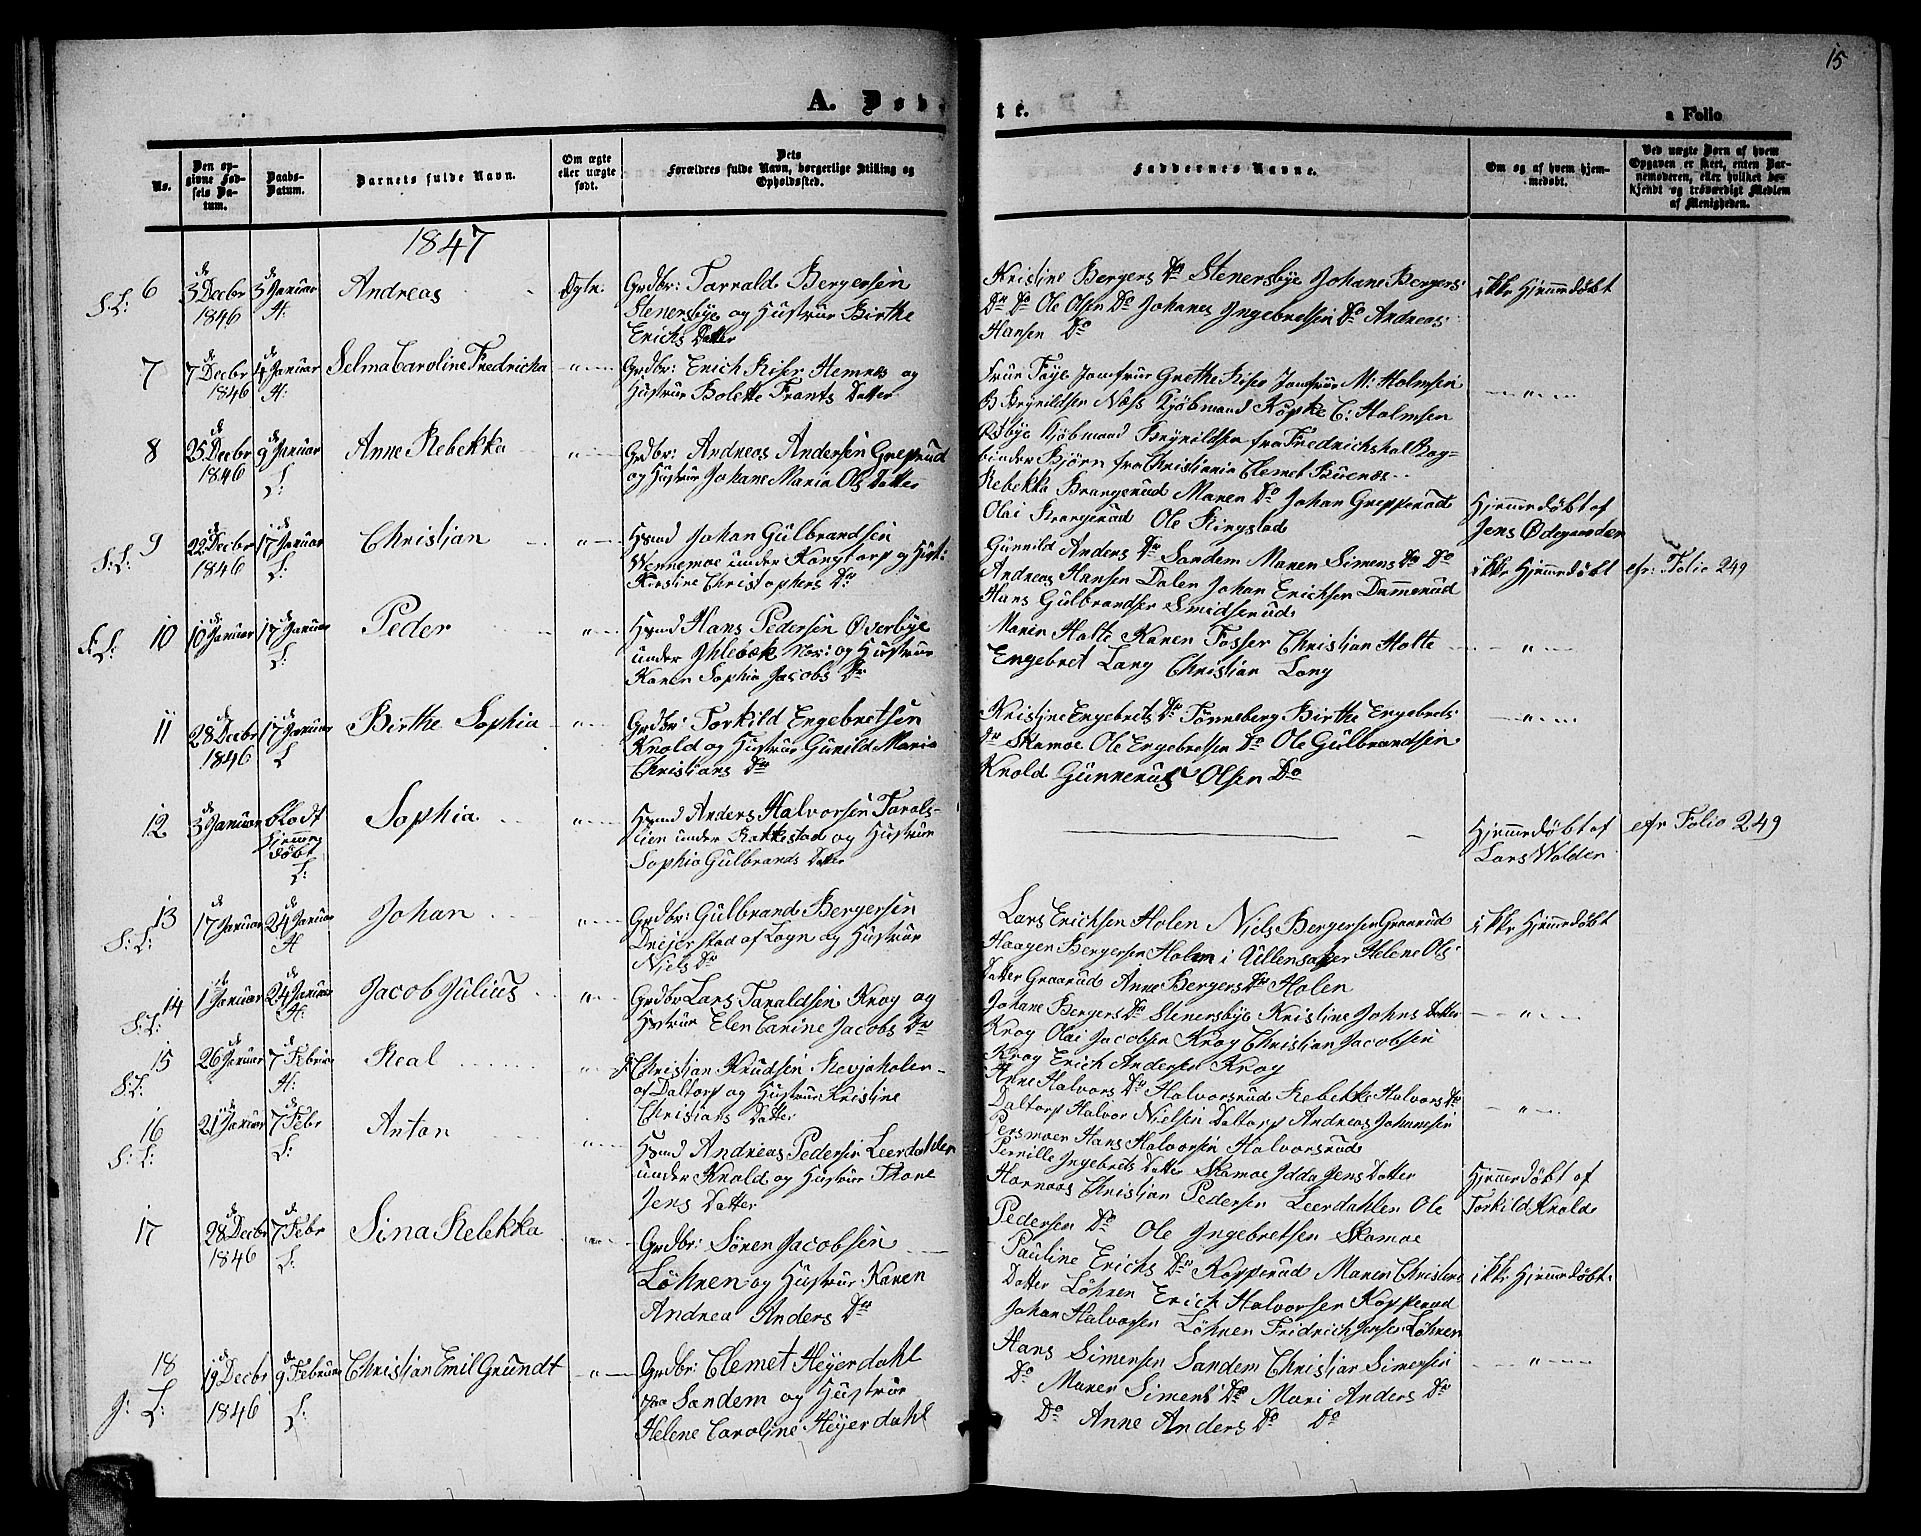 15
A. Døb-
te.
a Folio
No.
Den op-
givne Fød-
sels Da-
tum.
Daabs-
Datum.
Barnets fulde Navn.
Om ægte
eller uægte
født.
Dets
Forældres fulde Navn, borgerlige Stilling og
Opholdssted.
Faddernes Navne.
Om og af hvem hjem-
medøbt.
Ved uægte Børn af hvem
Opgaven er skeet, enten Bar-
nemoderen, eller hvilket be-
kjendt og troværdigt Medlem
af Menigheden.
1847
6
S: L:
3 de Decbr
1846
3 de Januar
H:
Andreas
Ægte.
Grdbr: Tarrald Bergersen
Stenersbye og Hustrue Birthe
Erichs Datter
Kristine Bergers Dtr Stenersbye Johane Bergers
Dtr Do Ole Olsen Do Johanes Ingebretsen Do Andreas
Hansen Do
ikke Hjemmedøbt
7
7 de Decbr
1846
4 de Januar
H:
Selma Caroline Fredricka
—"—
Grdbr: Erich Riser Hemnes og
Hustrue Bolette Frants Datter
Frue Faye Jomfrue Grethe Riser Jomfrue M: Holmsen
B Brynildsen Næss Kjøbmand Köpke C: Holmsen
Østbye Kjøbmand Brynildsen fra Fredrichshal Bog-
binder Bjørn fra Christiania Clemet Buenæs
—"—
8
25 de Decbr
1846
9 de Januar
L:
Anne Rebekka
—"—
Grdbr: Andreas Andersen Greprud
og Hustrue Johane Maria Ols Datter
Rebekka Krangerud Maren Do Johan Grepperud
Olai Krangerud Ole Ringstad
Hjemmedøbt af
Jens Ødegaarden
9
S: L:
22 de Decbr
1846
17 de Januar
L:
Christian
—"—
Hsmd Johan Gulbrandsen
Wennemoe under Kongtorp og Hust:
Kirstine Christophers Dtr
Gunnild Anders Dtr Sandem Maren Simens Dtr Do
Andreas Hansen Dalen Johan Erichsen Dammerud
Hans Gulbrandsen Smidserud
ikke Hjemmedøbt
cfr: Folio 249
10
S: L:
10 de Januar
17 de Januar
L:
Peder
—"—
Hsmd Hans Pedersen Overbye
under Ihlebæk Nor: og Hustrue
Karen Sophia Jacobs Dtr
Maren Holte Karen Fosser Christian Holte
Engebret Lang Christian Lang
—"—
11
28 de Decbr
1846
17 de Januar
L
Birthe Sophia
—"—
Grdbr: Torkild Engebretsen
Knold og Hustrue Gunild Maria
Christians Dtr
Kristine Engebrets Dtr Tønneberg Birthe Engebrets
Dtr Skamoe Ole Engebretsen Do Ole Gulbrandsen
Knold Gunnerus Olsen Do
—"—
12
3 de Januar
blodt
Hjemme
døbt
L:
Sophia
—"—
Hsmd Anders Halvorsen Tarals-
lien under Rakkestad og Hustrue
Sophia Gulbrands Datter
Hjemmedøbt af
Lars Wolden
cfr Folio 249
13
S: L:
17 de Januar
24 de Januar
H
Johan
—"—
Grdbr: Gulbrand Bergersen
Drejerstad af Sogn og Hustrue
Niels Dtr
Lars Erichsen Holen Niels Bergersen Graarud
Haagen Bergersen Holm i Ullensaker Helene Ols
Datter Graarud Anne Bergers Dtr Holen
ikke Hjemmedøbt
14
S: L:
1 Januar
24 de Januar
H:
Jacob Julius
—"—
Grdbr Lars Taraldsen Krog og
Hustrue Elen Carine Jacobs Dtr
Johane Bergers Dtr Stenersbye Kristine Johns Datter
Krog Olai Jacobsen Krog Christian Jacobsen
Krog Erich Andersen Krog
—"—
15
S: L:
26 Januar
7 Februar
H:
Real
—"—
Christian Knudsen Revjaholen
af Daltorp og Hustrue Kristine
Christians Datter
Anne Halvors Dtr Halvorsrud Rebekke Halvors Dtr
Daltorp Halvor Nielsen Daltorp Andreas Johannsen
Persmoen Hans Halvorsen Halvorsrud
—"—
16
S: L:
21 Januar
7 Febr
L:
Anton
—"—
Hsmd Andreas Pedersen Leerdahlen
under Knold og Hustrue Thore
Jens Datter
Pernille Ingebrets Datter Skamoe Idda Jens Datter
Hornaas Christian Pedersen Leerdahlen Ole
Pedersen Do Ole Ingebretsen Skamoe
Hjemmedøbt af
Torkild Knold
17
28 de Decbr
1846
7 de Febr
L:
Sina Rebekka
—"—
Grdbr: Søren Jacobsen
Løhren og Hustrue Karen
Andrea Anders Dtr
Pauline Erichs Dtr Kopperud Maren Christens
Datter Løhren Erich Halvorsen Kopperud
Johan Halvorsen Løhren Fridrich Jensen Løhren
ikke Hjemmedøbt
18
J: L:
19 de Decbr
1846
9 de Februar
L:
Christian Emil Grundt
—"—
Grdbr: Clemet Heyerdahl
paa Sandem og Hustrue
Helene Caroline Heyerdahl
Hans Simensen Sandem Christian Simensen
Do Maren Simens Do Mari Anders Dtr
Do Anne Anders Do Do
—"—